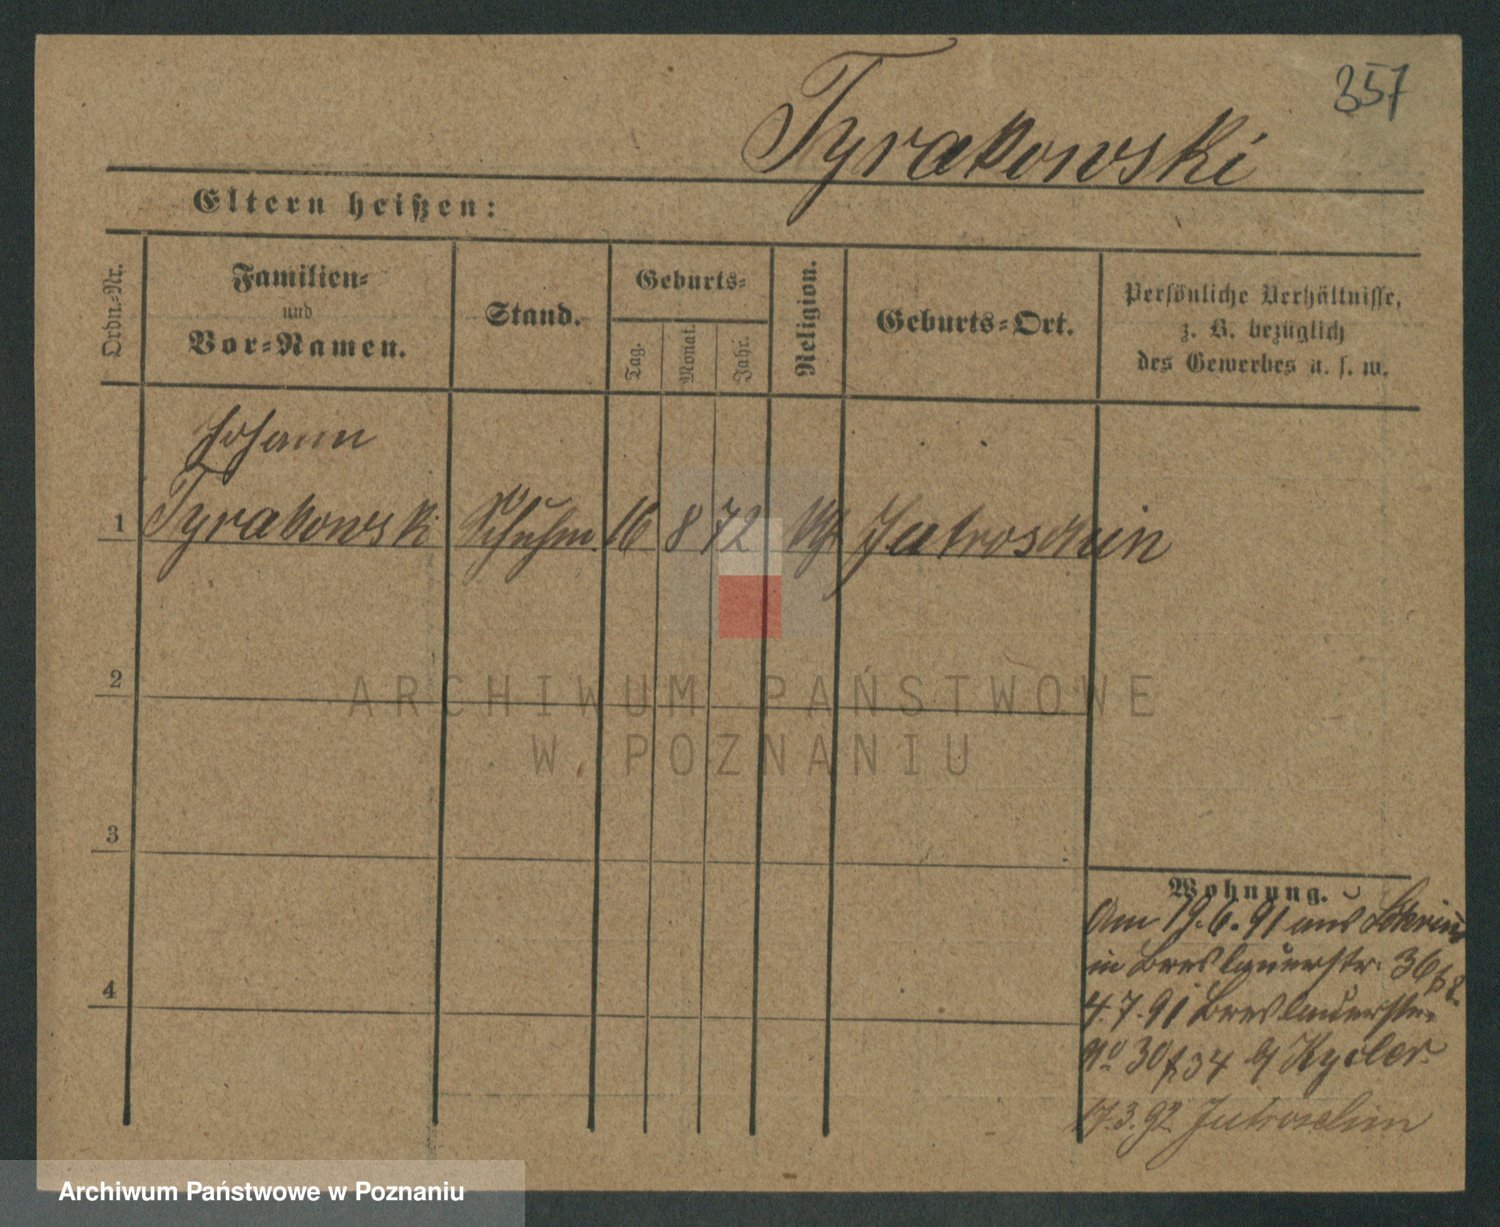 357
Tyrakowski
Eltern heißen:
Ordn.-Nr.
Familien-
und
Vor-Namen.
Stand.
Geburts-
Tag.
Monat.
Jahr.
Religion.
Geburts-Ort.
Persönliche Verhältnisse,
z. B. bezüglich
des Gewerbes u. s. w.
Johann
1 Tyrakowski Schuhm. 16 8 72 Jutroschin
2
ARCHIWUM PAŃSTWOWE
W POZNANIU
3
Wohnung.
Am 19.6.91 aus
in Breslauerstr. 36
4
4.7.91 Breslauerstr.
No 30
17.3.92 Jutroschin
Archiwum Państwowe w Poznaniu